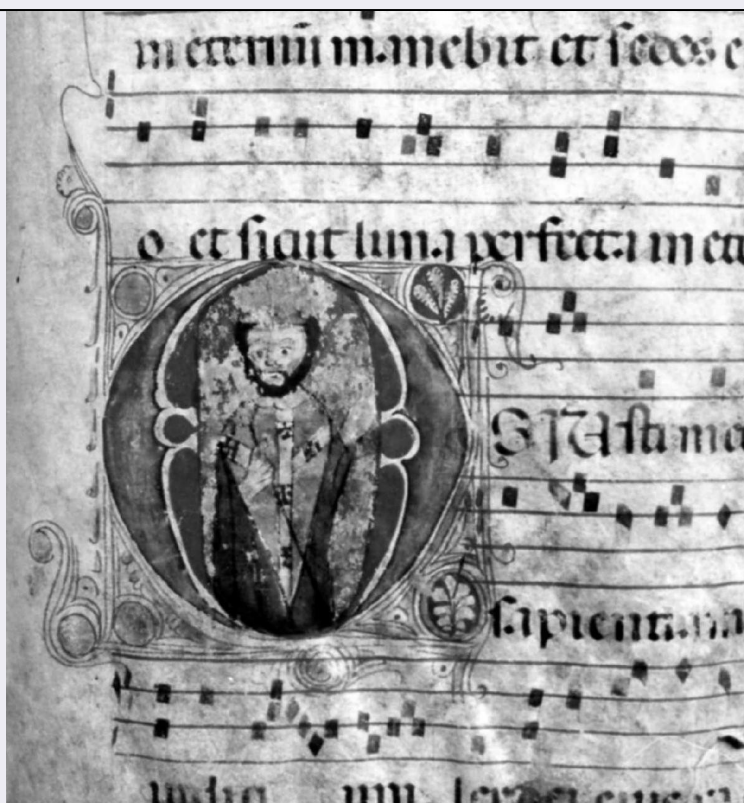 in eternū manebit et sedes e
o et sicut luna perfecta in ete
OS IUsti me
sapientiam